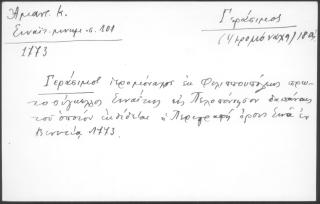 Ἀμαντ. Κ.
Σιναϊτ. μνημ. σ. 101
1773
Γεράσιμος
(Ἱερομόναχος) 18ος
Γεράσιμος Ἱερομόναχος ἐκ Φιλιππουπόλεως πρω-
τοσύγκελλος Σιναΐτης εἰς Πελοπόννησον δαπάναις
τοῦ ὁποίου ἐκδίδεται ἡ Περιγραφὴ ὄρους Σινᾶ ἐν
Βενετίᾳ 1773.